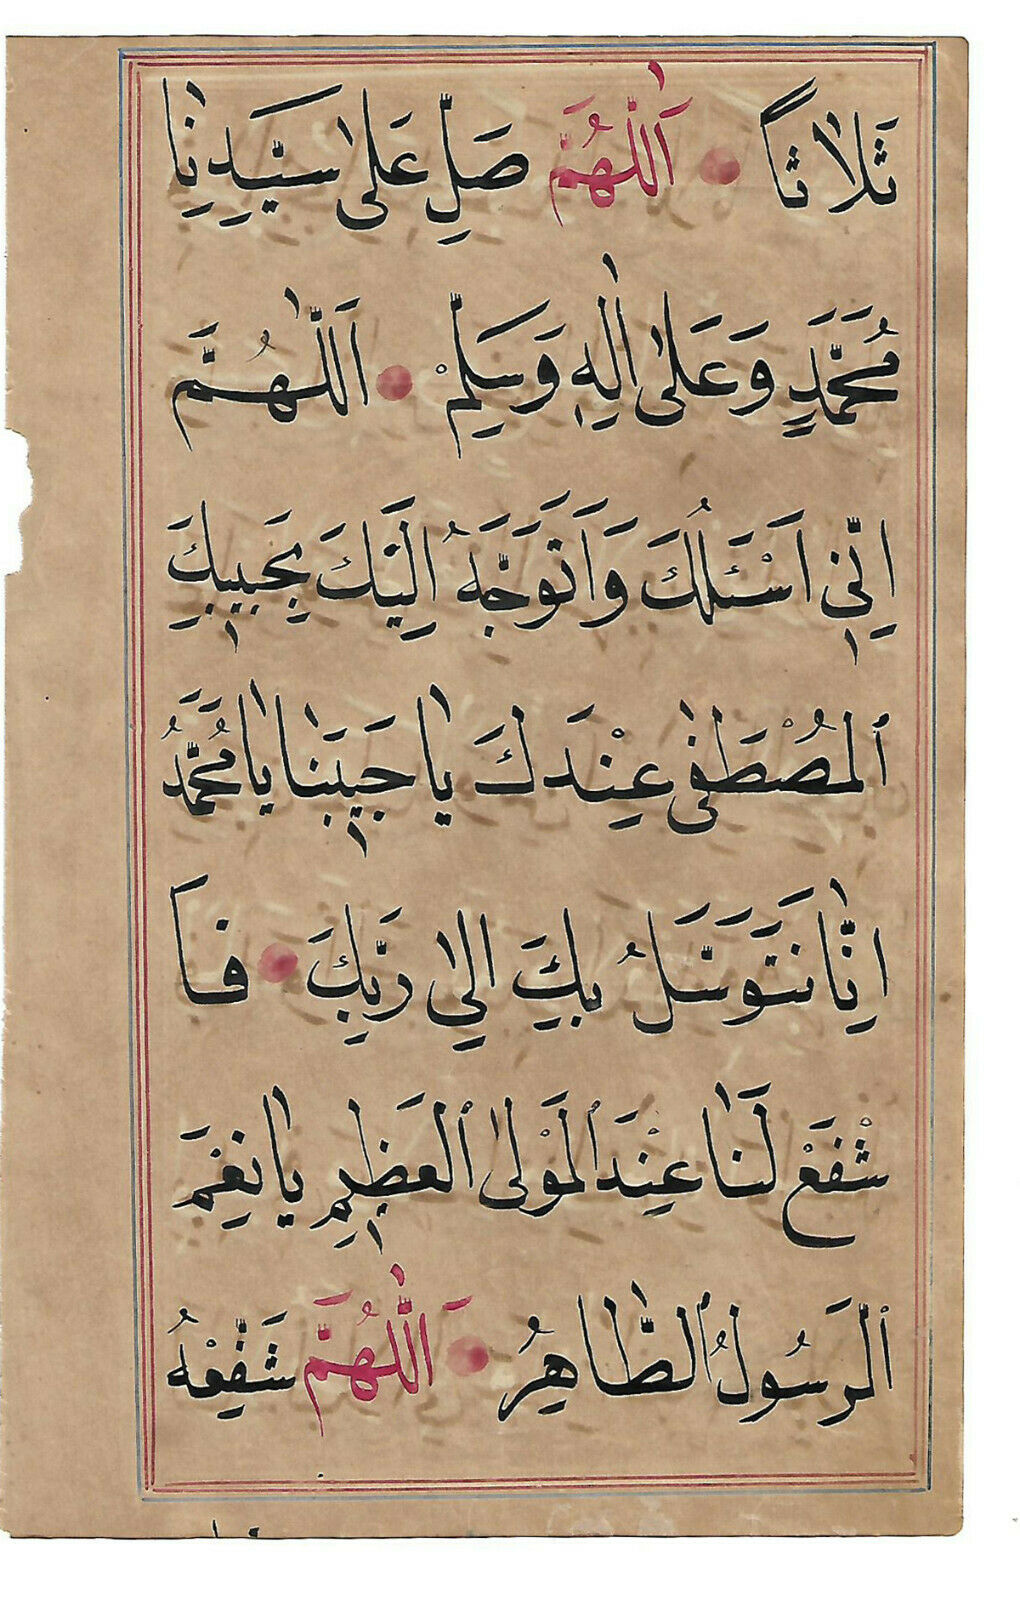 ثَلَاثًا اَللّٰهُمَّ صَلِّ عَلٰى سَيِّدِنَا
مُحَمَّدٍ وَعَلٰى اٰلِهٖ وَسَلِّمْ اَللّٰهُمَّ
اِنّٖى اَسْئَلُكَ وَاَتَوَجَّهُ اِلَيْكَ بِحَبٖيبِكَ
ٱلْمُصْطَفٰى عِنْدَكَ يَا حَبٖيبَنَا يَا مُحَمَّدُ
اِنَّا نَتَوَسَّلُ بِكَ اِلٰى رَبِّكَ فَا
شْفَعْ لَنَا عِنْدَ ٱلْمَوْلٰى ٱلْعَظٖيمِ يَا نِعْمَ
ٱلرَّسُولُ ٱلطَّاهِرُ اَللّٰهُمَّ شَفِّعْهُ